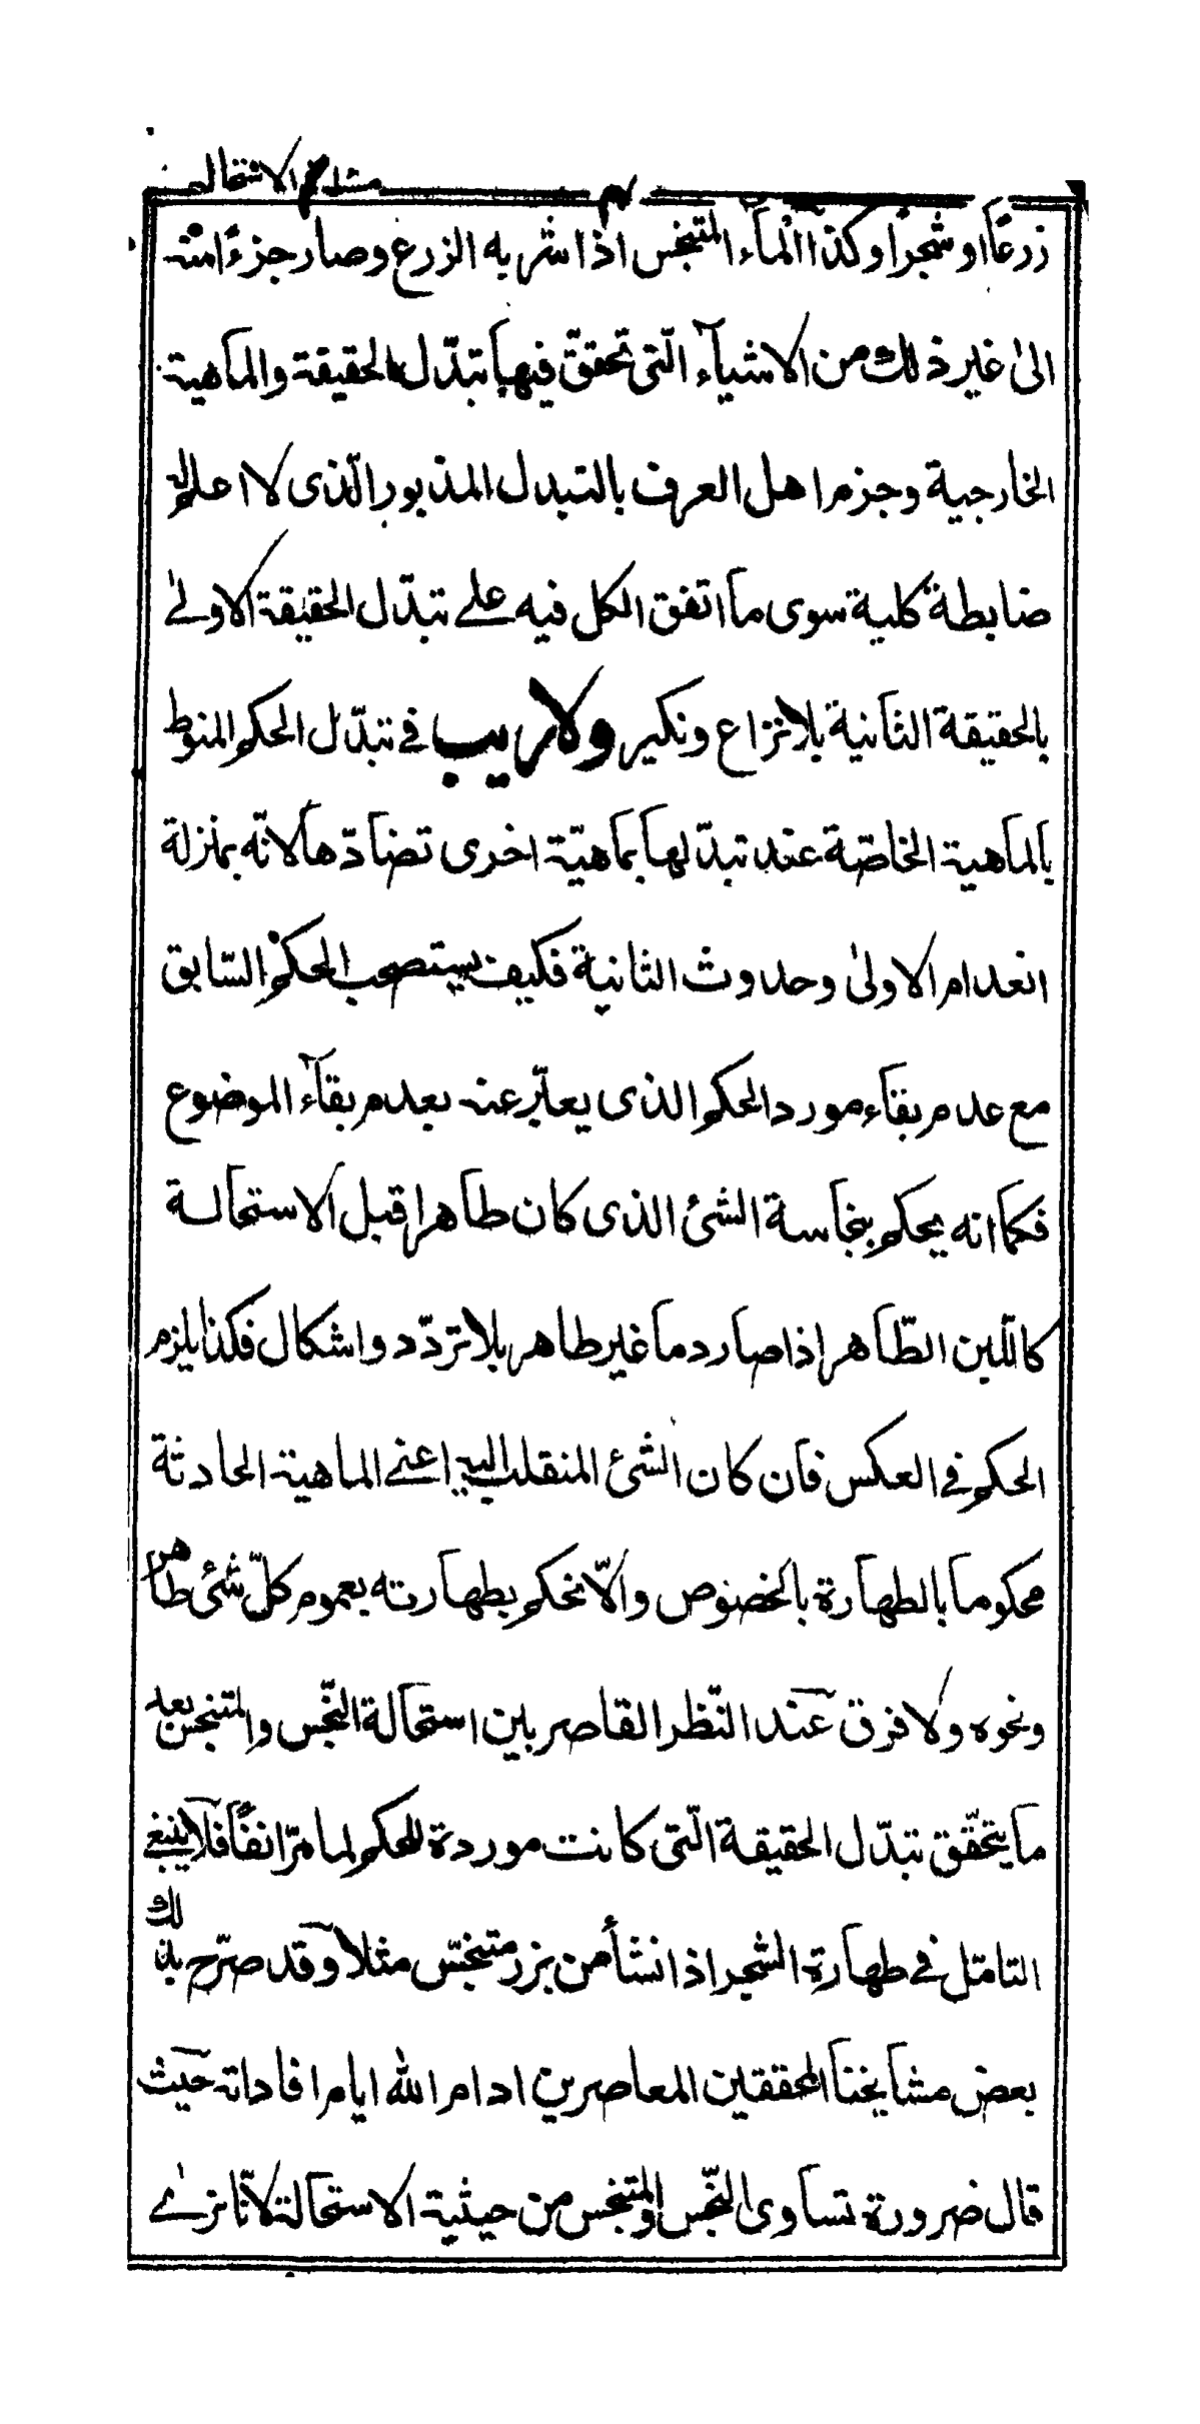 الاستحالة
زرعًا او شجرًا وكذا الماۤء المتنجس اذا شربه الزرع وصار جزءًا منه
الىٰ غير ذلك من الاشيآء الّتى تحقق فيها تبدّل الحقيقة والماهية
الخارجية وجزم اهل العرف بالتبدل المذبور الّذى لا اعلم له
ضابطة كلية سوى ما اتفق الكل فيه على تبدّل الحقيقة الاولىٰ
بالحقيقة الثانية بلا نزاع ونكير ولا ريب فى تبدّل الحكم المنوط
بالماهية الخاصّة عند تبدّلها بماهيّة اخرى تضادّها لانّه بمنزلة
انعدام الاولىٰ وحدوث الثانية فكيف يستصحب الحكم السّابق
مع عدم بقاء مورد الحكم الذى يعبّر عنه بعدم بقآء الموضوع
فكما انه يحكم بنجاسة الشئ الذى كان طاهرا قبل الاستحالة
كاللّبن الطّاهر اذا صار دما غير طاهر بلا تردّد واشكال فكذا يلزم
الحكم فى العكس فان كان الشئ المنقلب اليه اعنى الماهية الحادثة
محكوما بالطهارة بالخصوص والّا نحكم بطهارته بعموم كلّ شئ طاهر
ونحوه ولا فرق عند النّظر القاصر بين استحالة النّجس والمتنجس بعد
ما يتحقّق تبدّل الحقيقة الّتى كانت موردة للحكم لما مرّ انفًا فلا ينبغى
التامّل فى طهارة الشجر اذا نشأ من بزر متنجّس مثلا وقد صرّح بذلك
بعض مشايخنا المحققين المعاصرين ادام الله ايام افاداته حيث
قال ضرورة تساوى النّجس والمتنجس من حيثية الاستحالة لانّا نرى